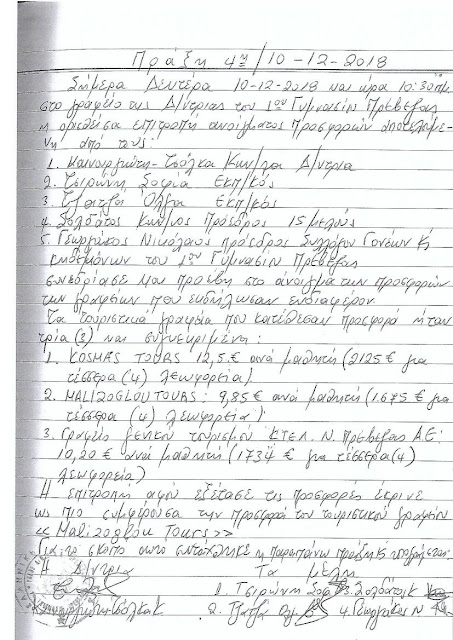 Πράξη 4η/10-12-2018
Σήμερα Δευτέρα 10-12-2018 και ώρα 10:30πμ
στο γραφείο της Δ/ντριας του 1ου Γυμνασίου Πρέβεζας
η ορισθείσα επιτροπή ανοίγματος προσφορών αποτελούμε-
νη από τους:
1. Καινουργιώτη-Τσόλκα Κων/να Δ/ντρια
2. Τσιρώνη Σοφία Εκπ/κός
3. Όλγα Εκπ/κός
4. Σολδάτος Κων/νος Πρόεδρος 15μελούς
5. Γεωργάκος Νικόλαος πρόεδρος Συλλόγου Γονέων κ
Κηδεμόνων του 1ου Γυμνασίου Πρέβεζας
συνεδρίασε και προέβη στο άνοιγμα των προσφορών
των γραφείων που εκδήλωσαν ενδιαφέρον
Τα τουριστικά γραφεία που κατέθεσαν προσφορά ήταν
τρία (3) και συγκεκριμένα:
1. KOSMAS TOURS 12,5 € ανά μαθητή (2125 € για
τέσσερα (4) λεωφορεία)
2. MALIZOGLOU TOURS: 9,85 € ανά μαθητή (1.675 € για
τέσσερα (4) λεωφορεία)
3. Γραφείο γενικού τουρισμού ΚΤΕΛ Ν. Πρέβεζας Α.Ε:
10,20 € ανά μαθητή (1734 € για τέσσερα (4)
λεωφορεία)
Η επιτροπή αφού εξέτασε τις προσφορές έκρινε
ως πιο συμφέρουσα την προσφορά του τουριστικού γραφείου
«Malizoglou Tours»
Για το σκοπό αυτό συντάχθηκε η παραπάνω πράξη κ υπογράφεται:
Η Δ/ντρια Τα μέλη
1. Τσιρώνη Σοφ 3. Σολδάτος Κ
Τσόλκα Κ 2. Όλγ 4. Γεωργάκος Ν